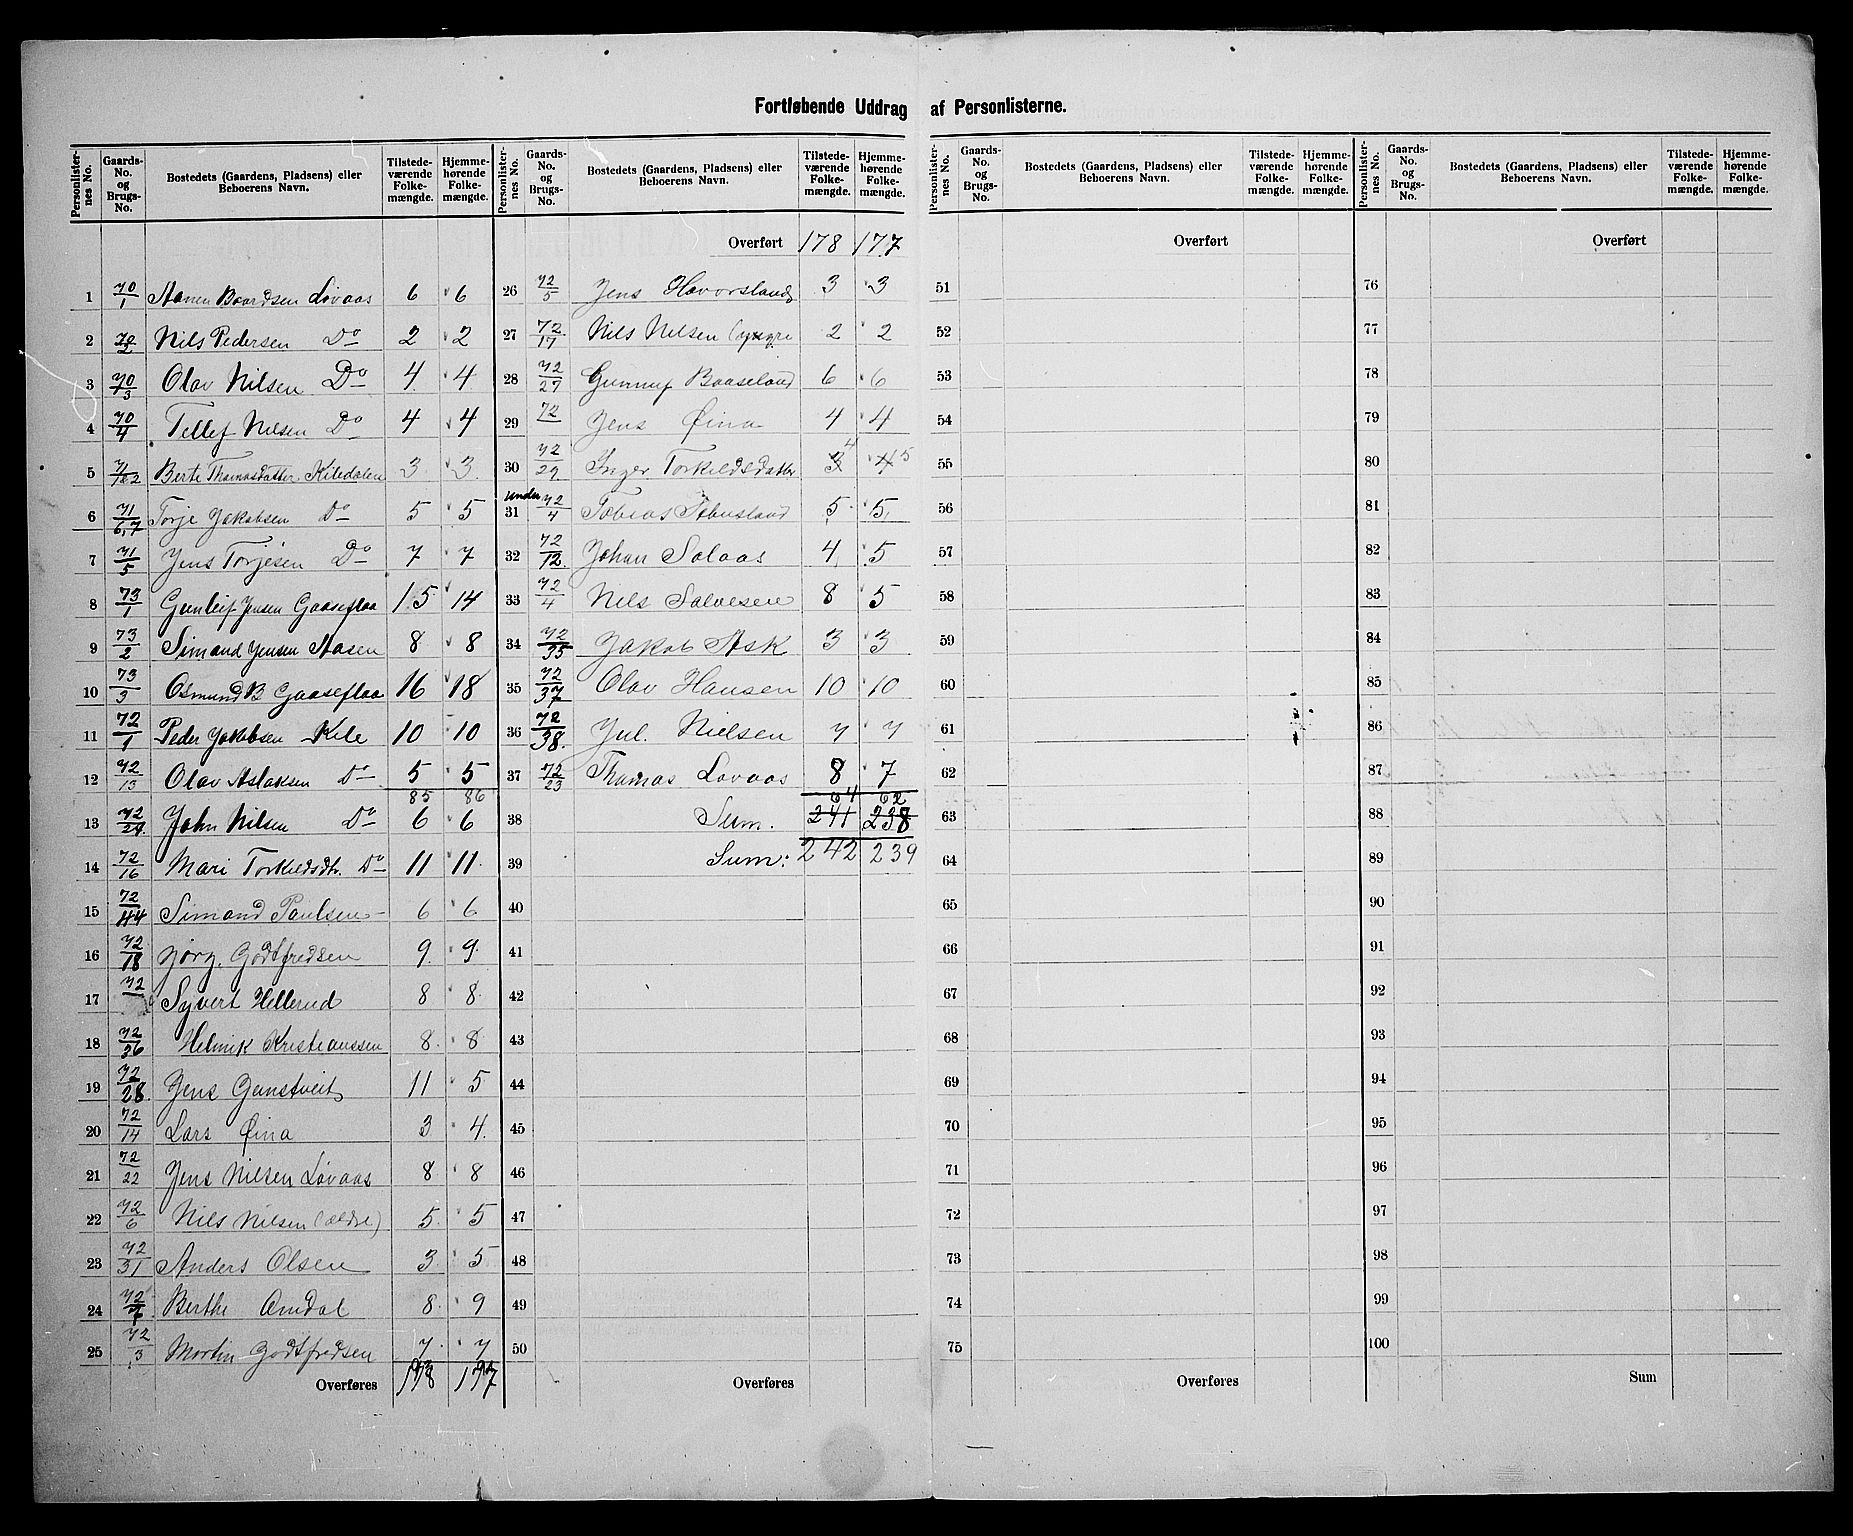 Fortløbende Uddrag af Personlisterne.
Personlisternes No. Gaards-No. og Brugs-No. Bostedets (Gaardens, Pladsens) eller Beboerens Navn. Tilstedeværende Folkemængde. Hjemmehørende Folkemængde.
1 70/1 Aanen Baardsen Løvaas 6 6
2 70/2 Nils Pedersen Do 2 2
3 70/3 Olav Nilsen Do 4 4
4 70/4 Tellef Nilsen Do 4 4
5 Berte Thomasdatter Kiledalen 3 3
6 71/6,7 Torje Jakobsen Do 5 5
7 71/5 Jens Torjesen Do 7 7
8 73/1 Gunleif Jensen Gaaseflaa 15 14
9 73/2 Simand Jensen Aasen 8 8
10 73/3 Osmund B Gaaseflaa 16 18
11 72/1 Peder Jakobsen Kile 10 10
12 72/13 Olav Aslaksen Do 5 5
85 86
13 John Nilsen Do 6 6
14 72/16 Mari Torkildsdtr. Do 11 11
15 72/44 Simand Paulsen 6 6
16 72/18 Jørg. Godtfredsen 9 9
17 72 Syvert Hellerud 8 8
18 72/36 Helmik Kristianssen 8 8
19 72/28 Jens Ganstveit 11 5
20 72/14 Lars Øina 3 4
21 72/22 Jens Nilsen Løvaas 8 8
22 72/6 Nils Nilsen (ældre) 5 5
23 72/31 Anders Olsen 3 5
24 72/7 Berthe Omdal 8 9
25 72/3 Martin Godtfredsen 7 7
Overføres 178 177
Personlisternes No. Gaards-No. og Brugs-No. Bostedets (Gaardens, Pladsens) eller Beboerens Navn. Tilstedeværende Folkemængde. Hjemmehørende Folkemængde.
Overført 178 177
26 72/5 Jens Havorsland 3 3
27 72/17 Nils Nilsen (yngre 2 2
28 72/27 Gunnuf Baaseland 6 6
29 72 Jens Øina 4 4
30 72/29 Inger Torkildsdatter 3 4 4 5
31 under 72/4 Tobias Stensland 5 5
32 72/12 Johan Solaas 4 5
33 72/4 Nils Salvesen 8 5
34 72/35 Jakob Ask 3 3
35 72/37 Olav Hansen 10 10
36 72/38 Jul. Nielsen 7 7
37 72/23 Thomas Løvaas 8 7
64 62
38 Sum. 241 238
39 Sum: 242 239
40
41
42
43
44
45
46
47
48
49
50
Overføres
Personlisternes No. Gaards-No. og Brugs-No. Bostedets (Gaardens, Pladsens) eller Beboerens Navn. Tilstedeværende Folkemængde. Hjemmehørende Folkemængde.
Overført
51
52
53
54
55
56
57
58
59
60
61
62
63
64
65
66
67
68
69
70
71
72
73
74
75
Overføres
Personlisternes No. Gaards-No. og Brugs-No. Bostedets (Gaardens, Pladsens) eller Beboerens Navn. Tilstedeværende Folkemængde. Hjemmehørende Folkemængde.
Overført
76
77
78
79
80
81
82
83
84
85
86
87
88
89
90
91
92
93
94
95
96
97
98
99
100
Sum